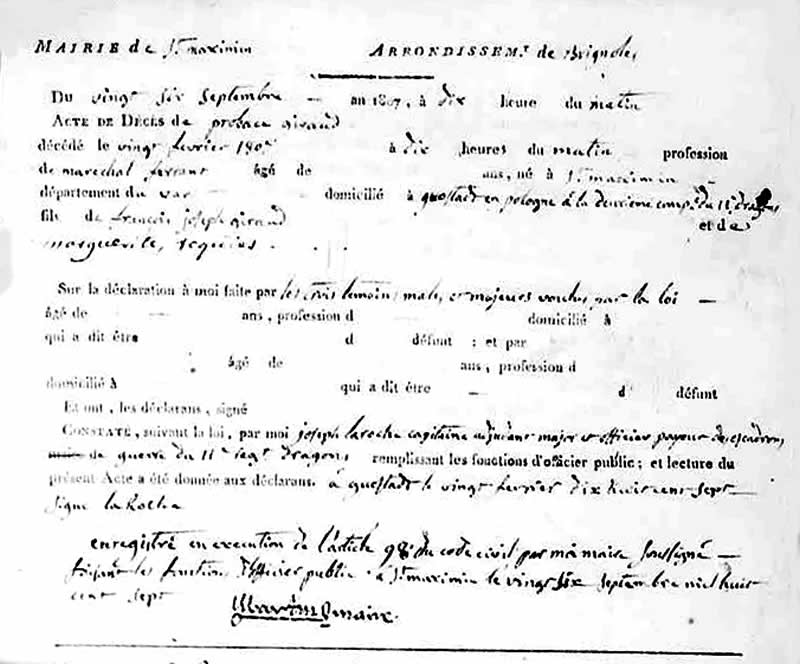 MAIRIE de St. maximin ARRONDISSEM.t de Brignoles
Du vingt six septembre — an 1807, à dix heure du matin
ACTE DE DÉCÈS de probace giraud
décédé le vingt fevrier 1807 à dix heures du matin profession
de marechal ferrant âgé de ans, né à St. maximin
département du var domicilié à questadt en pologne à la deuxieme comp.e du 11e dragons
fils de françois joseph giraud et de
marguerite,
Sur la déclaration à moi faite par les trois temoins males et majeurs voulus par la loi —
âgé de ans, profession d domicilié à
qui a dit être d défunt ; et par
âgé de ans, profession d
domicilié à qui a dit être d défunt
Et ont, les déclarans, signé
CONSTATÉ, suivant la loi, par moi joseph laroche capitaine adjudant major et officier payeur des escadrons
de guerre du 11e regt. dragons remplissant les fonctions d'officier public ; et lecture du
présent Acte a été donnée aux déclarans. à questadt le vingt fevrier dix huit cent sept —
signé la Roche
enregistré en execution de l'article 98 du code civil par moi maire soussigné —
faisant les fonctions d'officier public. à St. maximin le vingt six septembre mil huit
cent sept maire.